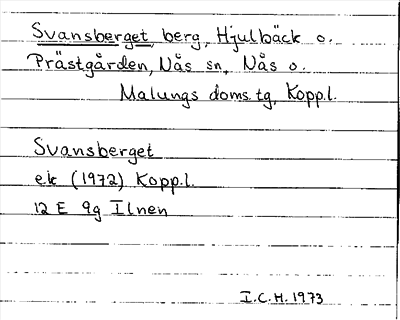 Svansberget, berg, Hjulbäck o.
Prästgården, Nås sn, Nås o.
Malungs doms.tg, Kopp.l.
Svansberget
ek (1972) Kopp.l.
12 E 9g Ilnen
I.C.H. 1973